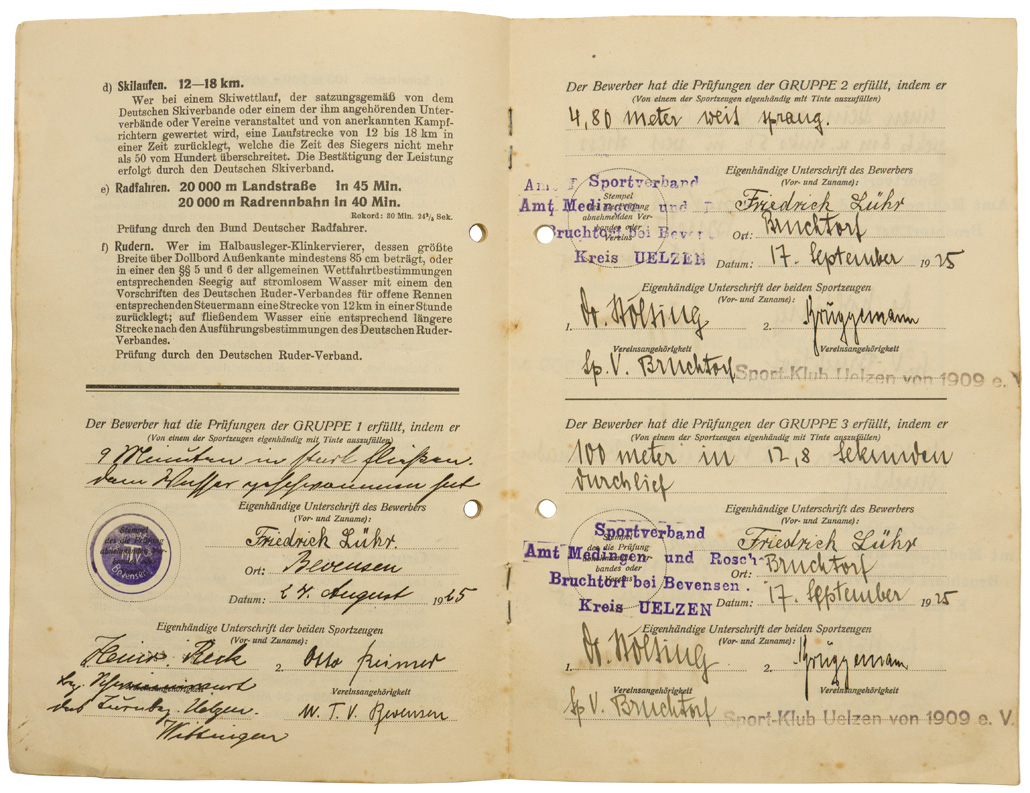 d) Skilaufen. 12—18 km.
Wer bei einem Skiwettlauf, der satzungsgemäß von dem
Deutschen Skiverbande oder einem der ihm angehörenden Unter-
verbände oder Vereine veranstaltet und von anerkannten Kampf-
richtern gewertet wird, eine Laufstrecke von 12 bis 18 km in
einer Zeit zurücklegt, welche die Zeit des Siegers nicht mehr
als 50 vom Hundert überschreitet. Die Bestätigung der Leistung
erfolgt durch den Deutschen Skiverband.
e) Radfahren. 20 000 m Landstraße in 45 Min.
20 000 m Radrennbahn in 40 Min.
Rekord: 20 Min. 24¹/₅ Sek.
Prüfung durch den Bund Deutscher Radfahrer.
f) Rudern. Wer im Halbausleger-Klinkervierer, dessen größte
Breite über Dollbord Außenkante mindestens 85 cm beträgt, oder
in einer den §§ 5 und 6 der allgemeinen Wettfahrtbestimmungen
entsprechenden Seegig auf stromlosem Wasser mit einem den
Vorschriften des Deutschen Ruder-Verbandes für offene Rennen
entsprechenden Steuermann eine Strecke von 12 km in einer Stunde
zurücklegt; auf fließendem Wasser eine entsprechend längere
Strecke nach den Ausführungsbestimmungen des Deutschen Ruder-
Verbandes.
Prüfung durch den Deutschen Ruder-Verband.
Der Bewerber hat die Prüfungen der GRUPPE 1 erfüllt, indem er
(Von einem der Sportzeugen eigenhändig mit Tinte auszufüllen)
9 Minuten in stark fließen-
dem Wasser geschwommen hat
Eigenhändige Unterschrift des Bewerbers
(Vor- und Zuname):
Stempel
des die Prüfung
abnehmenden Ver-
Bevensen
Friedrich Lühr.
Ort: Bevensen
Datum: 27. August 1925
Eigenhändige Unterschrift der beiden Sportzeugen
(Vor- und Zuname):
Heinr. Reck 2. Otto Reimer
Vereinsangehörigkeit
des Turnbez. Uelzen-
Wittingen
M.T.V. Bevensen
Der Bewerber hat die Prüfungen der GRUPPE 2 erfüllt, indem er
(Von einem der Sportzeugen eigenhändig mit Tinte auszufüllen)
4,80 meter weit sprang.
Eigenhändige Unterschrift des Bewerbers
(Vor- und Zuname):
Sportverband
Amt Medingen und
Bruchtorf bei Beven
Kreis UELZEN
Stempel
abnehmenden Ver-
bandes oder
Vereins
Friedrich Lühr
Ort: Bruchtorf
Datum: 17. September 1925
Eigenhändige Unterschrift der beiden Sportzeugen
(Vor- und Zuname):
1. Dr. Hölsing 2. Brüggemann
Vereinsangehörigkeit Vereinsangehörigkeit
Sp. V. Bruchtorf Sport-Klub Uelzen von 1909 e. V
Der Bewerber hat die Prüfungen der GRUPPE 3 erfüllt, indem er
(Von einem der Sportzeugen eigenhändig mit Tinte auszufüllen)
100 meter in 12,8 Sekunden
durchlief
Eigenhändige Unterschrift des Bewerbers
(Vor- und Zuname):
Sportverband
Amt Medingen und Rosch
Bruchtorf bei Bevensen.
Kreis UELZEN
Stempel
des die Prüfung
abnehmenden Ver-
bandes oder
Vereins
Friedrich Lühr
Ort: Bruchtorf
Datum: 17. September 1925
Eigenhändige Unterschrift der beiden Sportzeugen
(Vor- und Zuname):
1. Dr. Hölsing 2. Brüggemann
Vereinsangehörigkeit Vereinsangehörigkeit
Sp V. Bruchtorf Sport-Klub Uelzen von 1909 e. V.